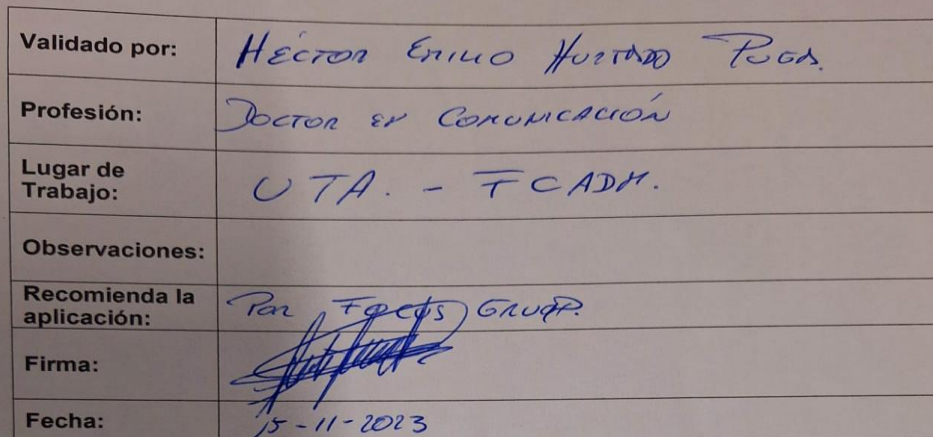 Validado por: HÉCTOR EMILIO HURTADO PUGA.
Profesión: DOCTOR EN COMUNICACIÓN
Lugar de
Trabajo: UTA. - FCADM.
Observaciones:
Recomienda la
aplicación: POR FOCUS GROUP.
Firma:
Fecha: 15-11-2023